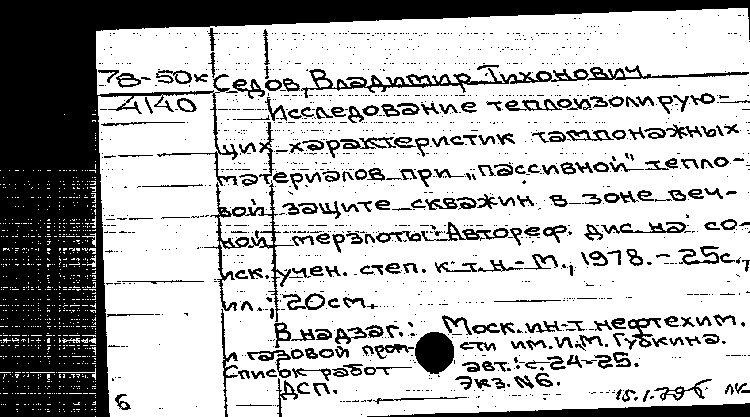 78-50к Седов, Владимир Тихонович.
4140 Исследование теплоизолирую-
щих характеристик тампонажных
материалов при „пассивной" тепло-
вой защите скважин в зоне веч-
ной мерзлоты: Автореф. дис. на со-
иск. учен. степ. к.т.н. - М., 1978. - 25с.,
ил.; 20см.
В надзаг.: Моск. ин-т нефтехим.
и газовой пром- сти им. И.М. Губкина.
Список работ авт.: с. 24-25.
ДСП. Экз. N6.
6 15.1.79г